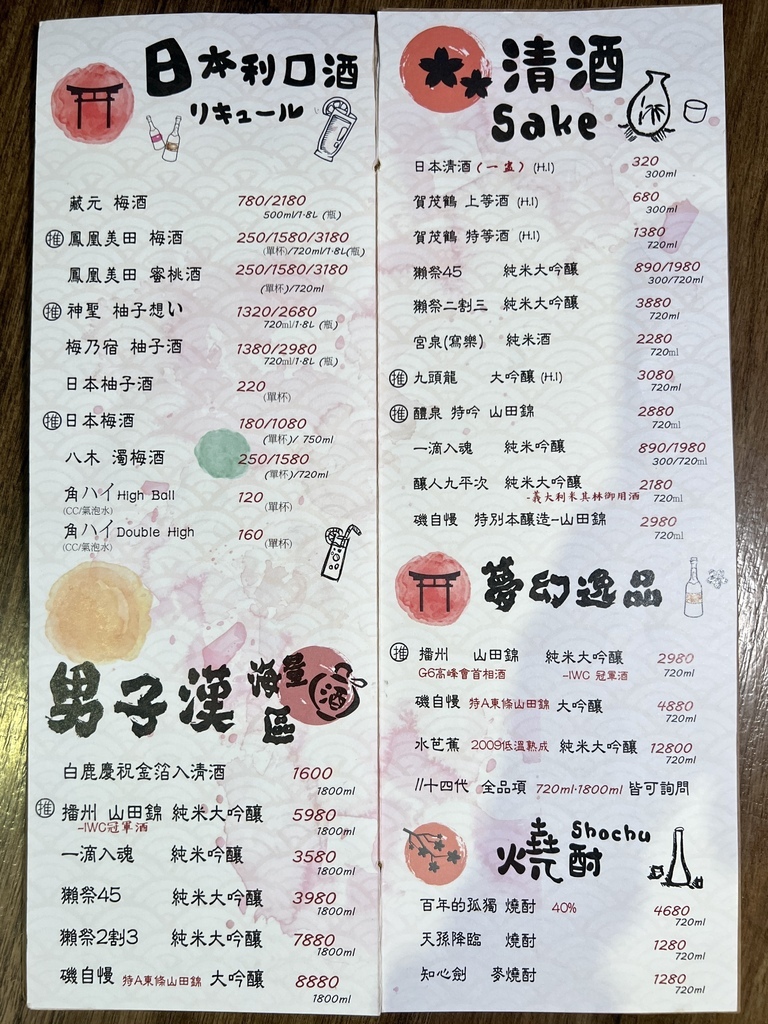 日本利口酒
リキュール
藏元 梅酒 780/2180
500ml/1.8L (瓶)
推 鳳凰美田 梅酒 250/1580/3180
(單杯)/720ml/1.8L(瓶)
鳳凰美田 蜜桃酒 250/1580/3180
(單杯)/720ml
推 神聖 柚子想い 1320/2680
720ml/1.8L (瓶)
梅乃宿 柚子酒 1380/2980
720ml/1.8L (瓶)
日本柚子酒 220
(單杯)
推 日本梅酒 180/1080
(單杯)/ 750ml
八木 濁梅酒 250/1580
(單杯)/720ml
角ハイ High Ball 120
(CC/氣泡水) (單杯)
角ハイ Double High 160
(CC/氣泡水) (單杯)
男子漢 酒
區
白鹿慶祝金箔入清酒 1600
1800ml
推 播州 山田錦 純米大吟釀 5980
-IWC冠軍酒 1800ml
一滴入魂 純米吟釀 3580
1800ml
獺祭45 純米大吟釀 3980
1800ml
獺祭2割3 純米大吟釀 7880
1800ml
磯自慢 特A東條山田錦 大吟釀 8880
1800ml
清酒
Sake
日本清酒(一盅) (H.I) 320
300ml
賀茂鶴 上等酒 (H.I) 680
300ml
賀茂鶴 特等酒 (H.I) 1380
720ml
獺祭45 純米大吟釀 890/1980
300/720ml
獺祭二割三 純米大吟釀 3880
720ml
宮泉(寫樂) 純米酒 2280
720ml
推 九頭龍 大吟釀 (H.I) 3080
720ml
推 醴泉 特吟 山田錦 2880
720ml
一滴入魂 純米吟釀 890/1980
300/720ml
釀人九平次 純米大吟釀 2180
-義大利米其林御用酒 720ml
磯自慢 特別本釀造-山田錦 2980
720ml
夢幻逸品
推 播州 山田錦 純米大吟釀 2980
G6高峰會首相酒 -IWC 冠軍酒 720ml
磯自慢 特A東條山田錦 大吟釀 4880
720ml
水芭蕉 2009低溫熟成 純米大吟釀 12800
720ml
//十四代 全品項 720ml.1800ml 皆可詢問
燒酎 Shochu
百年的孤獨 燒酎 40% 4680
720ml
天孫降臨 燒酎 1280
720ml
知心劍 麥燒酎 1280
720ml